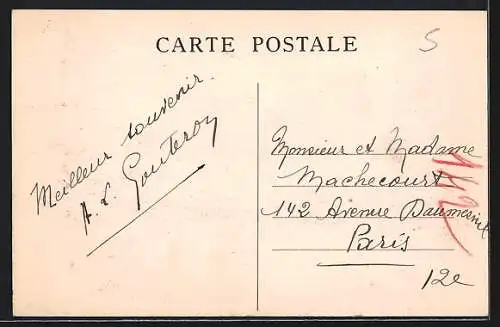 CARTE POSTALE
S
Meilleur souvenir.
A. L. Gouteron
Monsieur et Madame
Machecourt
142 Avenue Daumesnil
Paris
12e
142